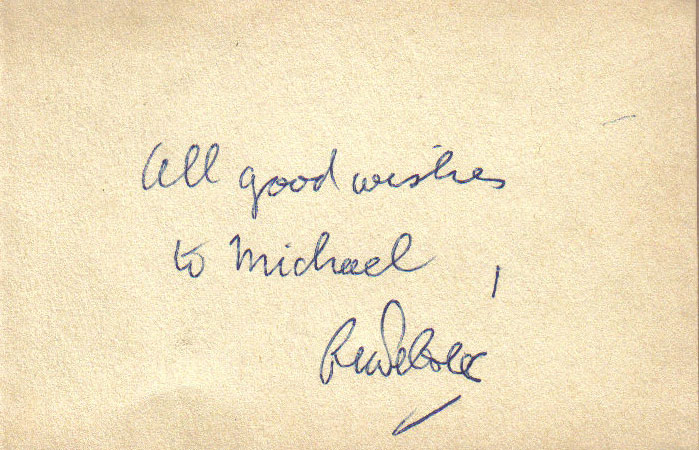 All good wishes
to Michael